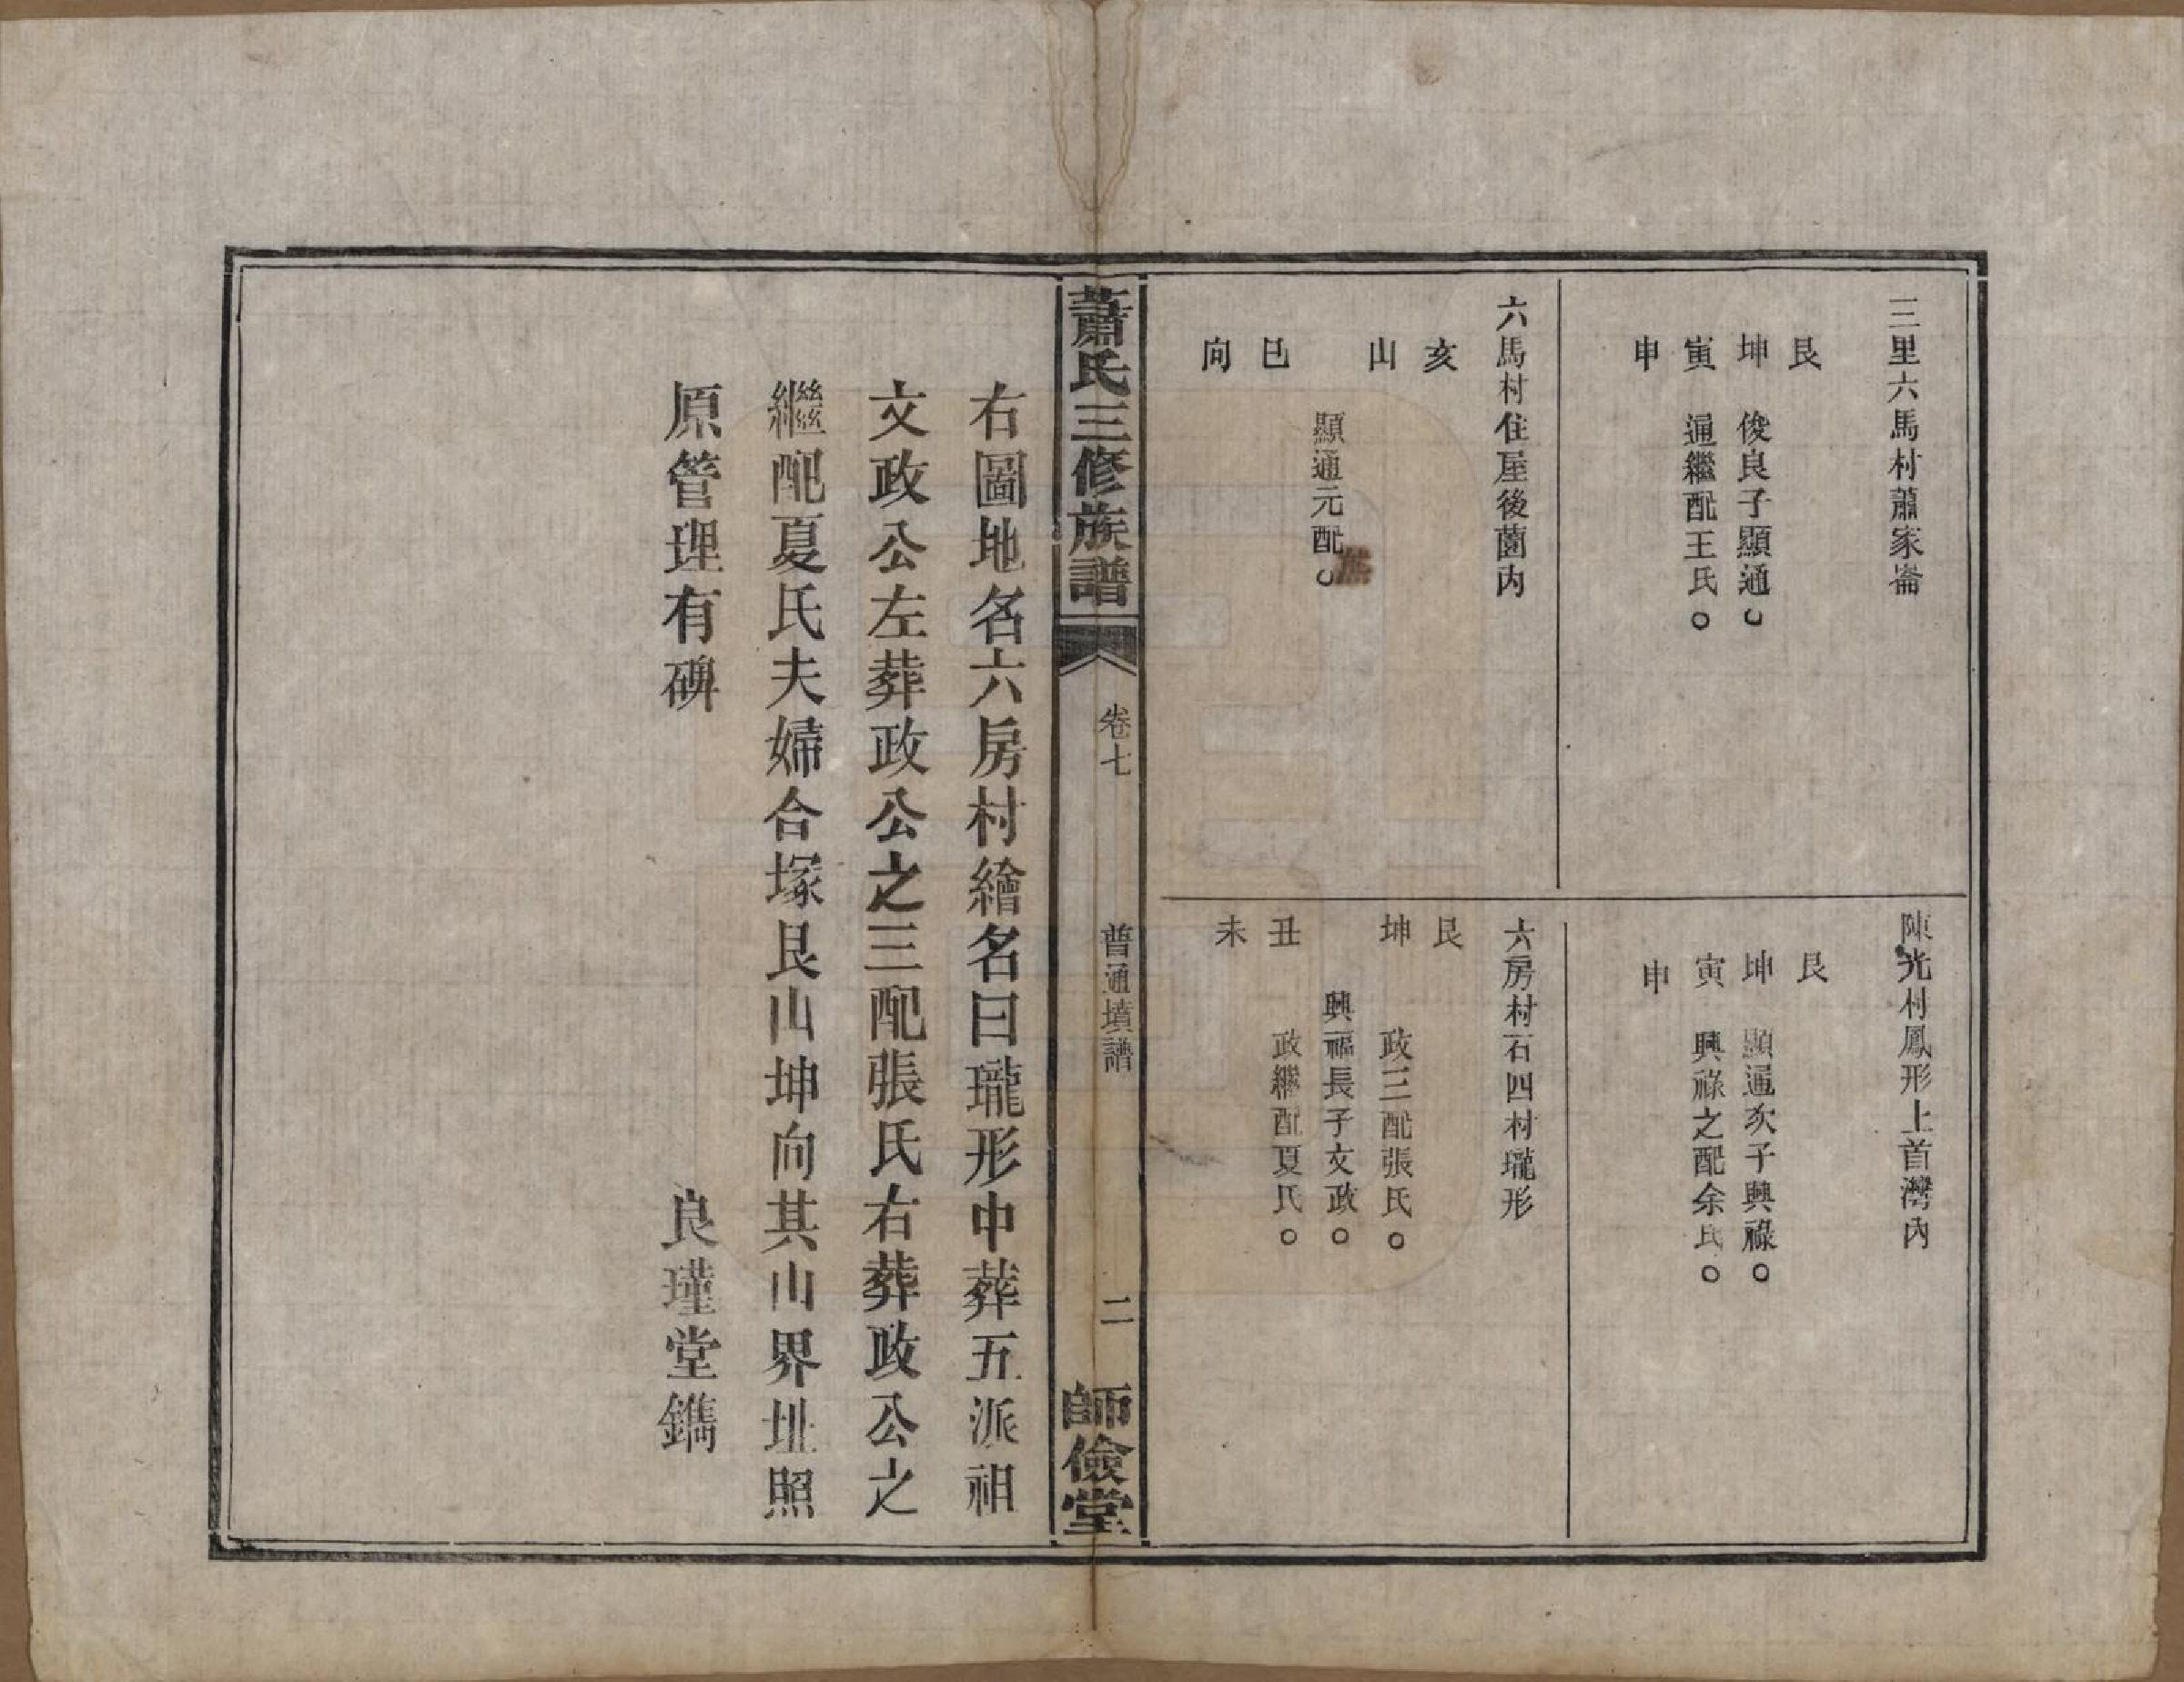 三里六馬村蕭家崙
艮
坤　俊良子顯通○
寅　通繼配王氏○
申
六馬村住屋後薗內
亥
山
顯通元配○
巳
向
陳光村鳳形上首灣內
艮
坤　顯通次子興祿○
寅　興祿之配余氏○
申
六房村石四村瓏形
艮
坤　政三配張氏○
興福長子文政○
丑　政繼配夏氏○
未
蕭氏三修族譜　卷七　普通墳譜　二　師儉堂
右圖地名六房村繪名曰瓏形中葬五派祖
文政公左葬政公之三配張氏右葬政公之
繼配夏氏夫婦合塚艮山坤向其山界址照
原管理有碑　良瑾堂鐫